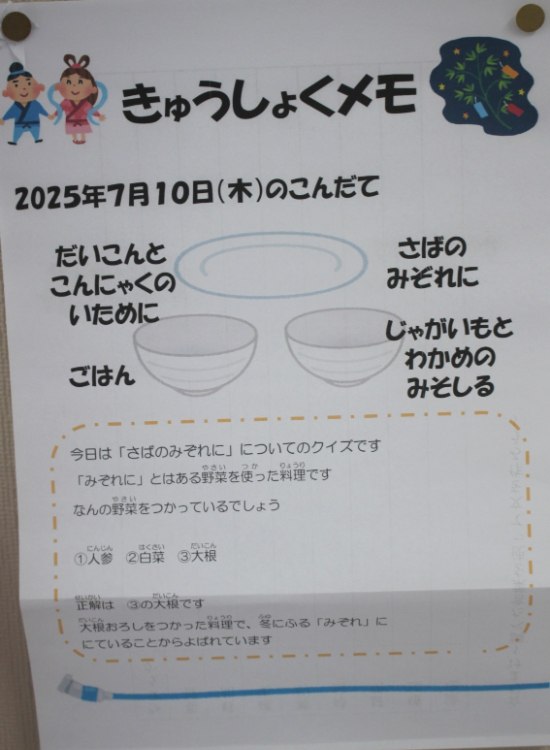 きゅうしょくメモ
2025年7月10日(木)のこんだて
だいこんと
こんにゃくの
いために
さばの
みぞれに
ごはん
じゃがいもと
わかめの
みそしる
今日は「さばのみぞれに」についてのクイズです
「みぞれに」とはある野菜を使った料理です
なんの野菜をつかっているでしょう
①人参 ②白菜 ③大根
正解は ③の大根です
大根おろしをつかった料理で、冬にふる「みぞれ」に
にていることからよばれています